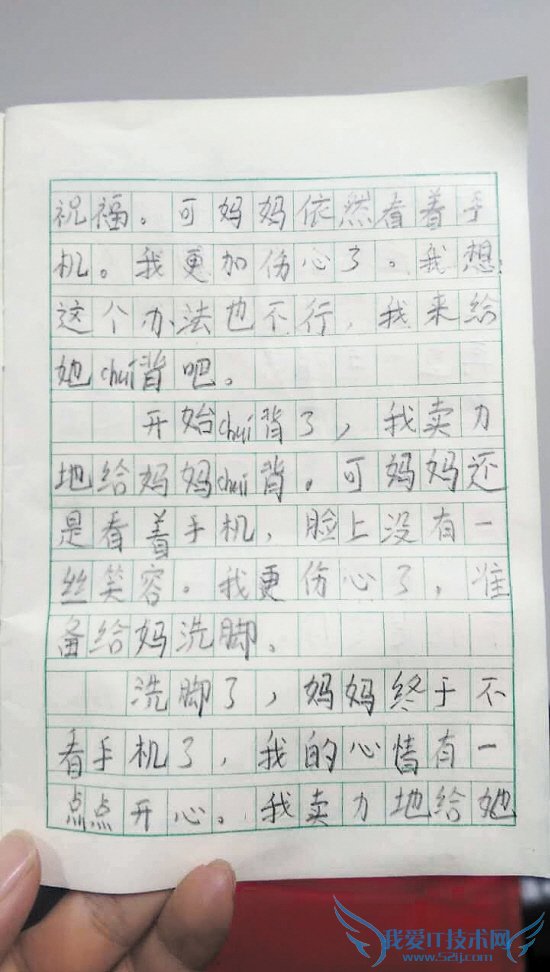 祝福。可妈妈依然看着手
机。我更加伤心了。我想:
这个办法也不行,我来给
她chui背吧。
开始chui背了,我卖力
地给妈妈chui背。可妈妈还
是看着手机,脸上没有一
丝笑容。我更伤心了,准
备给妈洗脚。
洗脚了,妈妈终于不
看手机了,我的心情有一
点点开心。我卖力地给她
我爱IT技术网
www.52ij.com